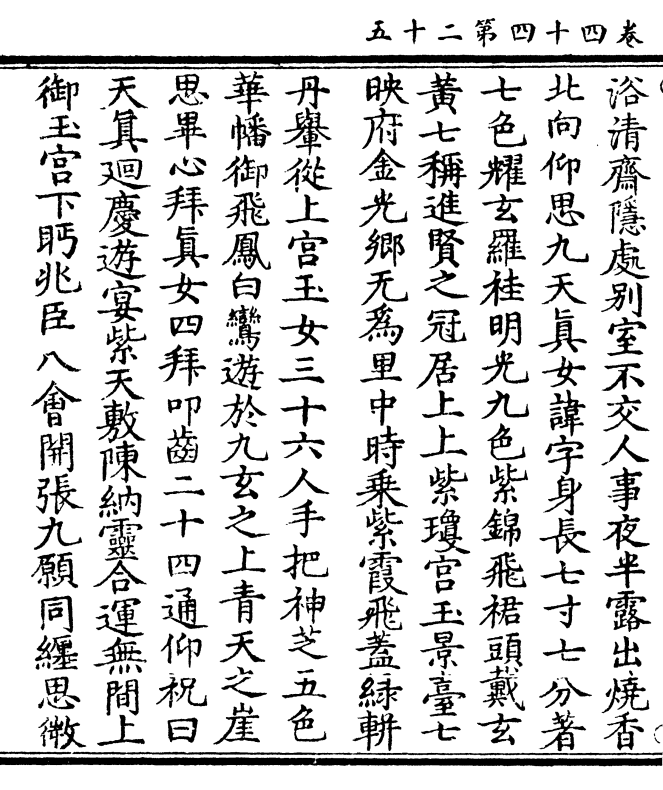 卷四十四第二十五
浴清齋隱處別室不交人事夜半露出燒香
北向仰思九天眞女諱字身長七寸七分著
七色耀玄羅袿明光九色紫錦飛裙頭戴玄
黃七稱進賢之冠居上上紫瓊宮玉景臺七
映府金光鄉无爲里中時乗紫霞飛蓋緑軿
丹轝從上宮玉女三十六人手把神芝五色
華幡御飛鳳白鸞遊於九玄之上青天之崖
思畢心拜眞女四拜叩齒二十四通仰祝曰
天眞廻慶遊宴紫天敷陳納靈合運無間上
御玉宮下眄兆臣八會開張九願同纏思微